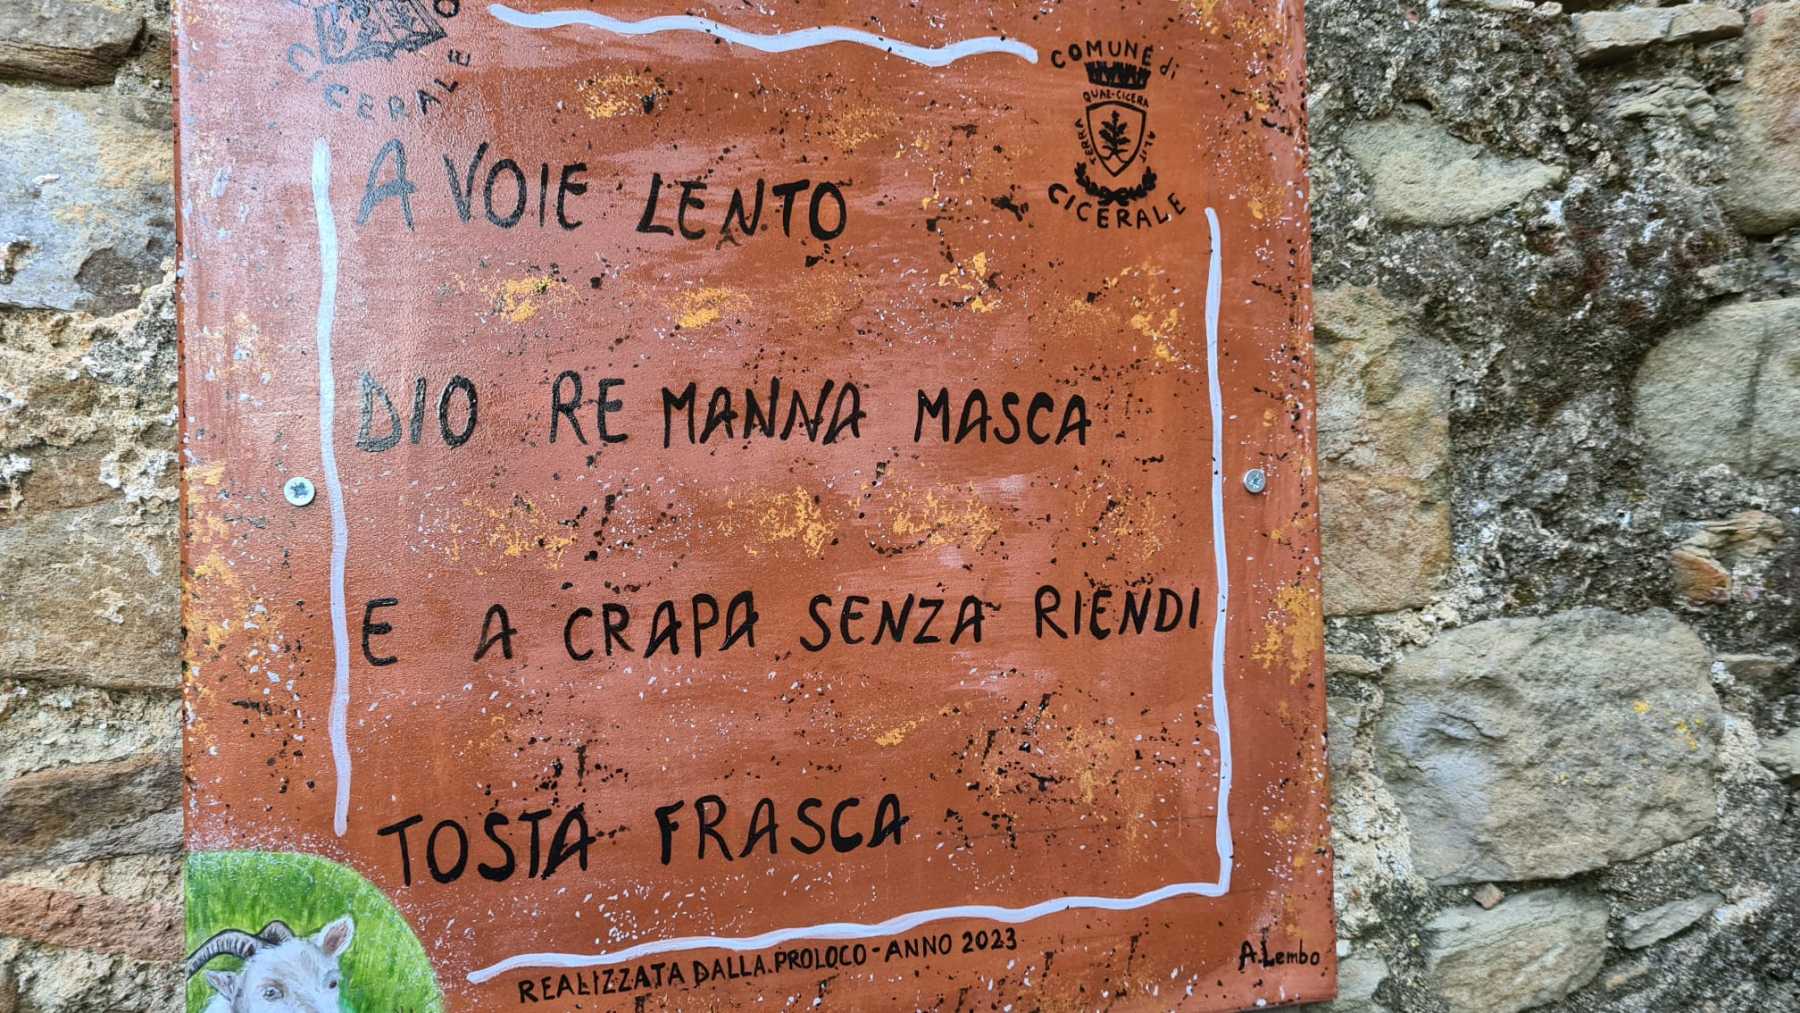 CICERALE
COMUNE di
QUAE-CICERA
TERRA
ALIT
CICERALE
A VOIE LENTO
DIO RE MANNA MASCA
E A CRAPA SENZA RIENDI
TOSTA FRASCA
REALIZZATA DALLA PROLOCO - ANNO 2023
A. Lembo